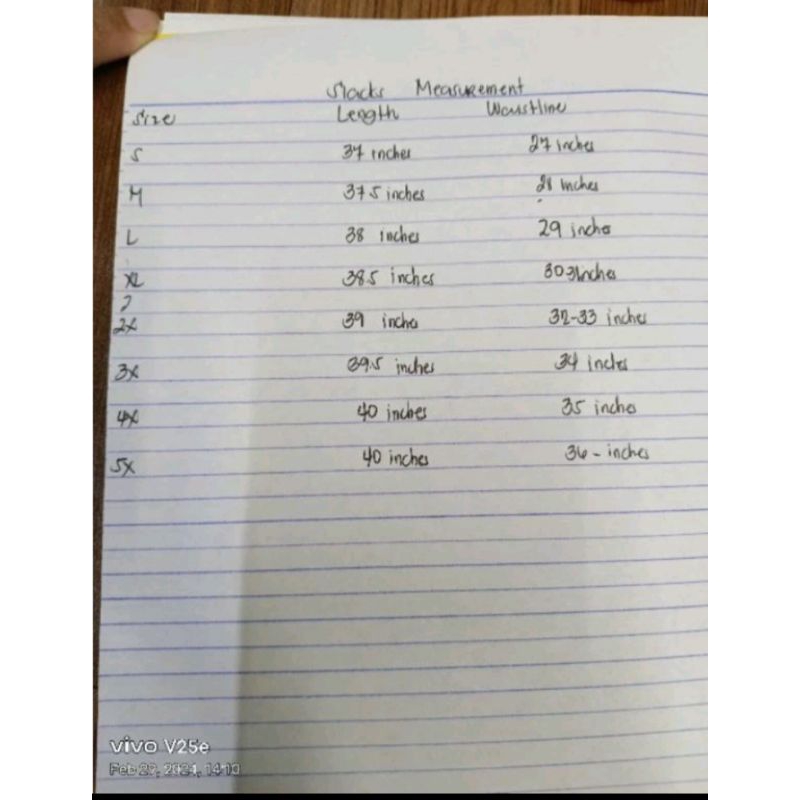 Slacks Measurement
Size Length Waistline
S 37 inches 27 inches
M 37.5 inches 28 inches
L 38 inches 29 inches
XL 38.5 inches 30 31 inches
2
2X 39 inches 32-33 inches
3X 39.5 inches 34 inches
4X 40 inches 35 inches
5X 40 inches 36 - inches
vivo V25e
Feb 29, 2024, 14:10